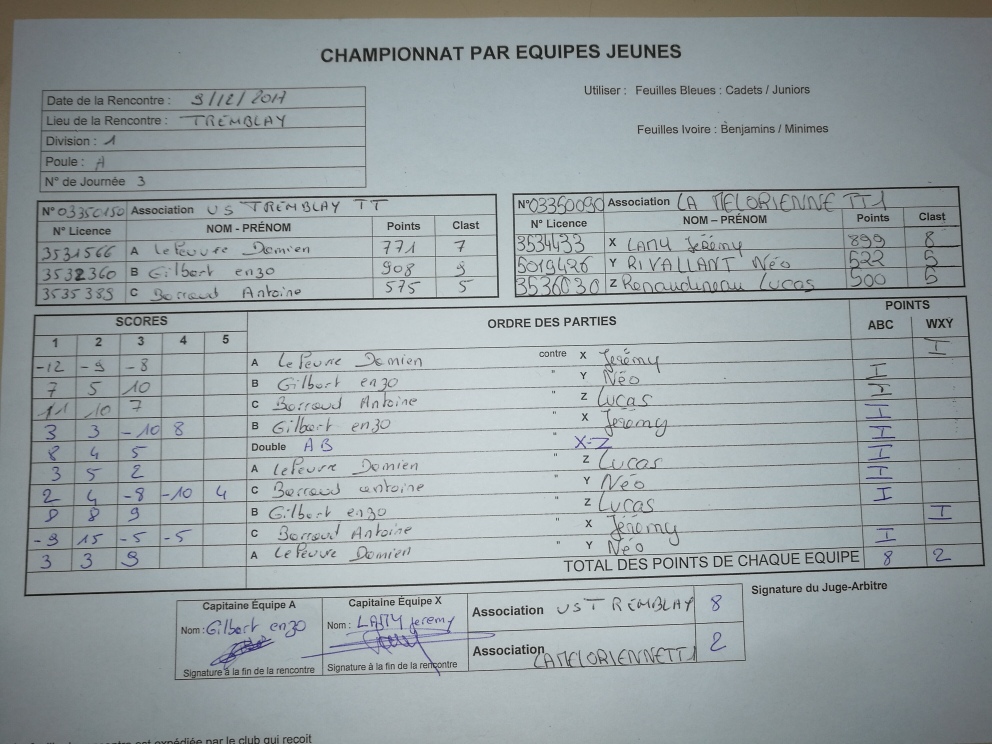 CHAMPIONNAT PAR EQUIPES JEUNES
Utiliser : Feuilles Bleues : Cadets / Juniors
Feuilles Ivoire : Benjamins / Minimes
Date de la Rencontre : 9/12/2017
Lieu de la Rencontre : TREMBLAY
Division : 1
Poule : A
N° de Journée 3
N° 03350150 Association US TREMBLAY TT
N° Licence NOM - PRÉNOM Points Clast
3531566 A LePeuvre Damien 771 7
3532360 B Gilbert enzo 908 9
3535389 C Barraud Antoine 575 5
N° 03350090 Association LA MELORIENNE TT1
N° Licence NOM – PRÉNOM Points Clast
3534433 X LAMY Jérémy 899 8
5019426 Y RIVALLANT Néo 522 5
3536030 Z Renaudineau Lucas 500 5
SCORES ORDRE DES PARTIES POINTS
1 2 3 4 5 ABC WXY
-12 -9 -8 A LePeuvre Damien contre X Jérémy I
7 5 10 B Gilbert enzo " Y Néo I
11 10 7 C Barraud Antoine " Z Lucas I
3 3 -10 8 B Gilbert enzo " X Jérémy I
8 4 5 Double AB " X-Z I
3 5 2 A LePeuvre Damien " Z Lucas I
2 4 -8 -10 4 C Barraud antoine " Y Néo I
8 8 9 B Gilbert enzo " Z Lucas I
-9 15 -5 -5 C Barraud Antoine " X Jérémy I
3 3 9 A LePeuvre Damien " Y Néo I
TOTAL DES POINTS DE CHAQUE EQUIPE 8 2
Capitaine Équipe A
Nom : Gilbert enzo
Signature à la fin de la rencontre
Capitaine Équipe X
Nom : LAMY Jeremy
Signature à la fin de la rencontre
Association US TREMBLAY 8
Association LA MELORIENNE TT1 2
Signature du Juge-Arbitre
expédiée par le club qui reçoit